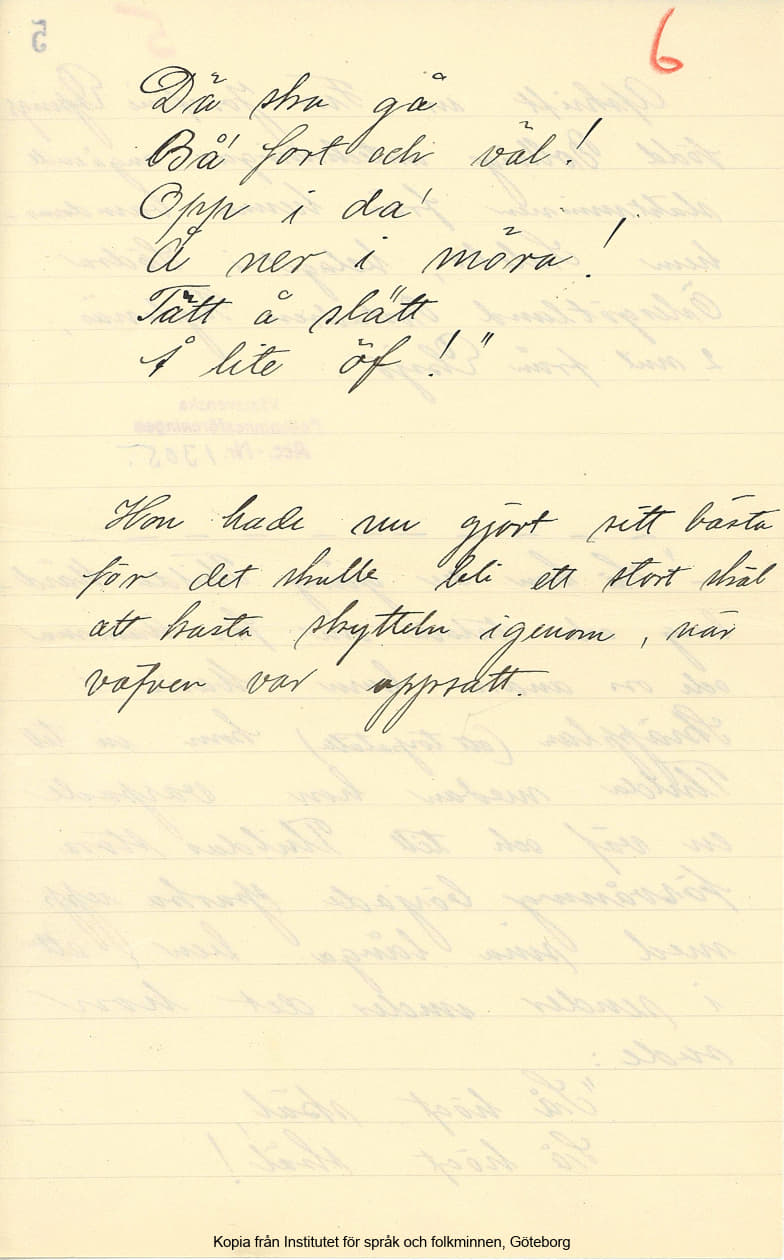 6
Dä ska gå
Bå' fort och väl!
Opp i da'
Å ner i möra!
Tätt å slätt
Å lite öf!"
Hon hade nu gjort sitt bästa
för det skulle bli ett stort skäl
att kasta skytteln igenom, när
väfven var uppsatt.
Kopia från Institutet för språk och folkminnen, Göteborg